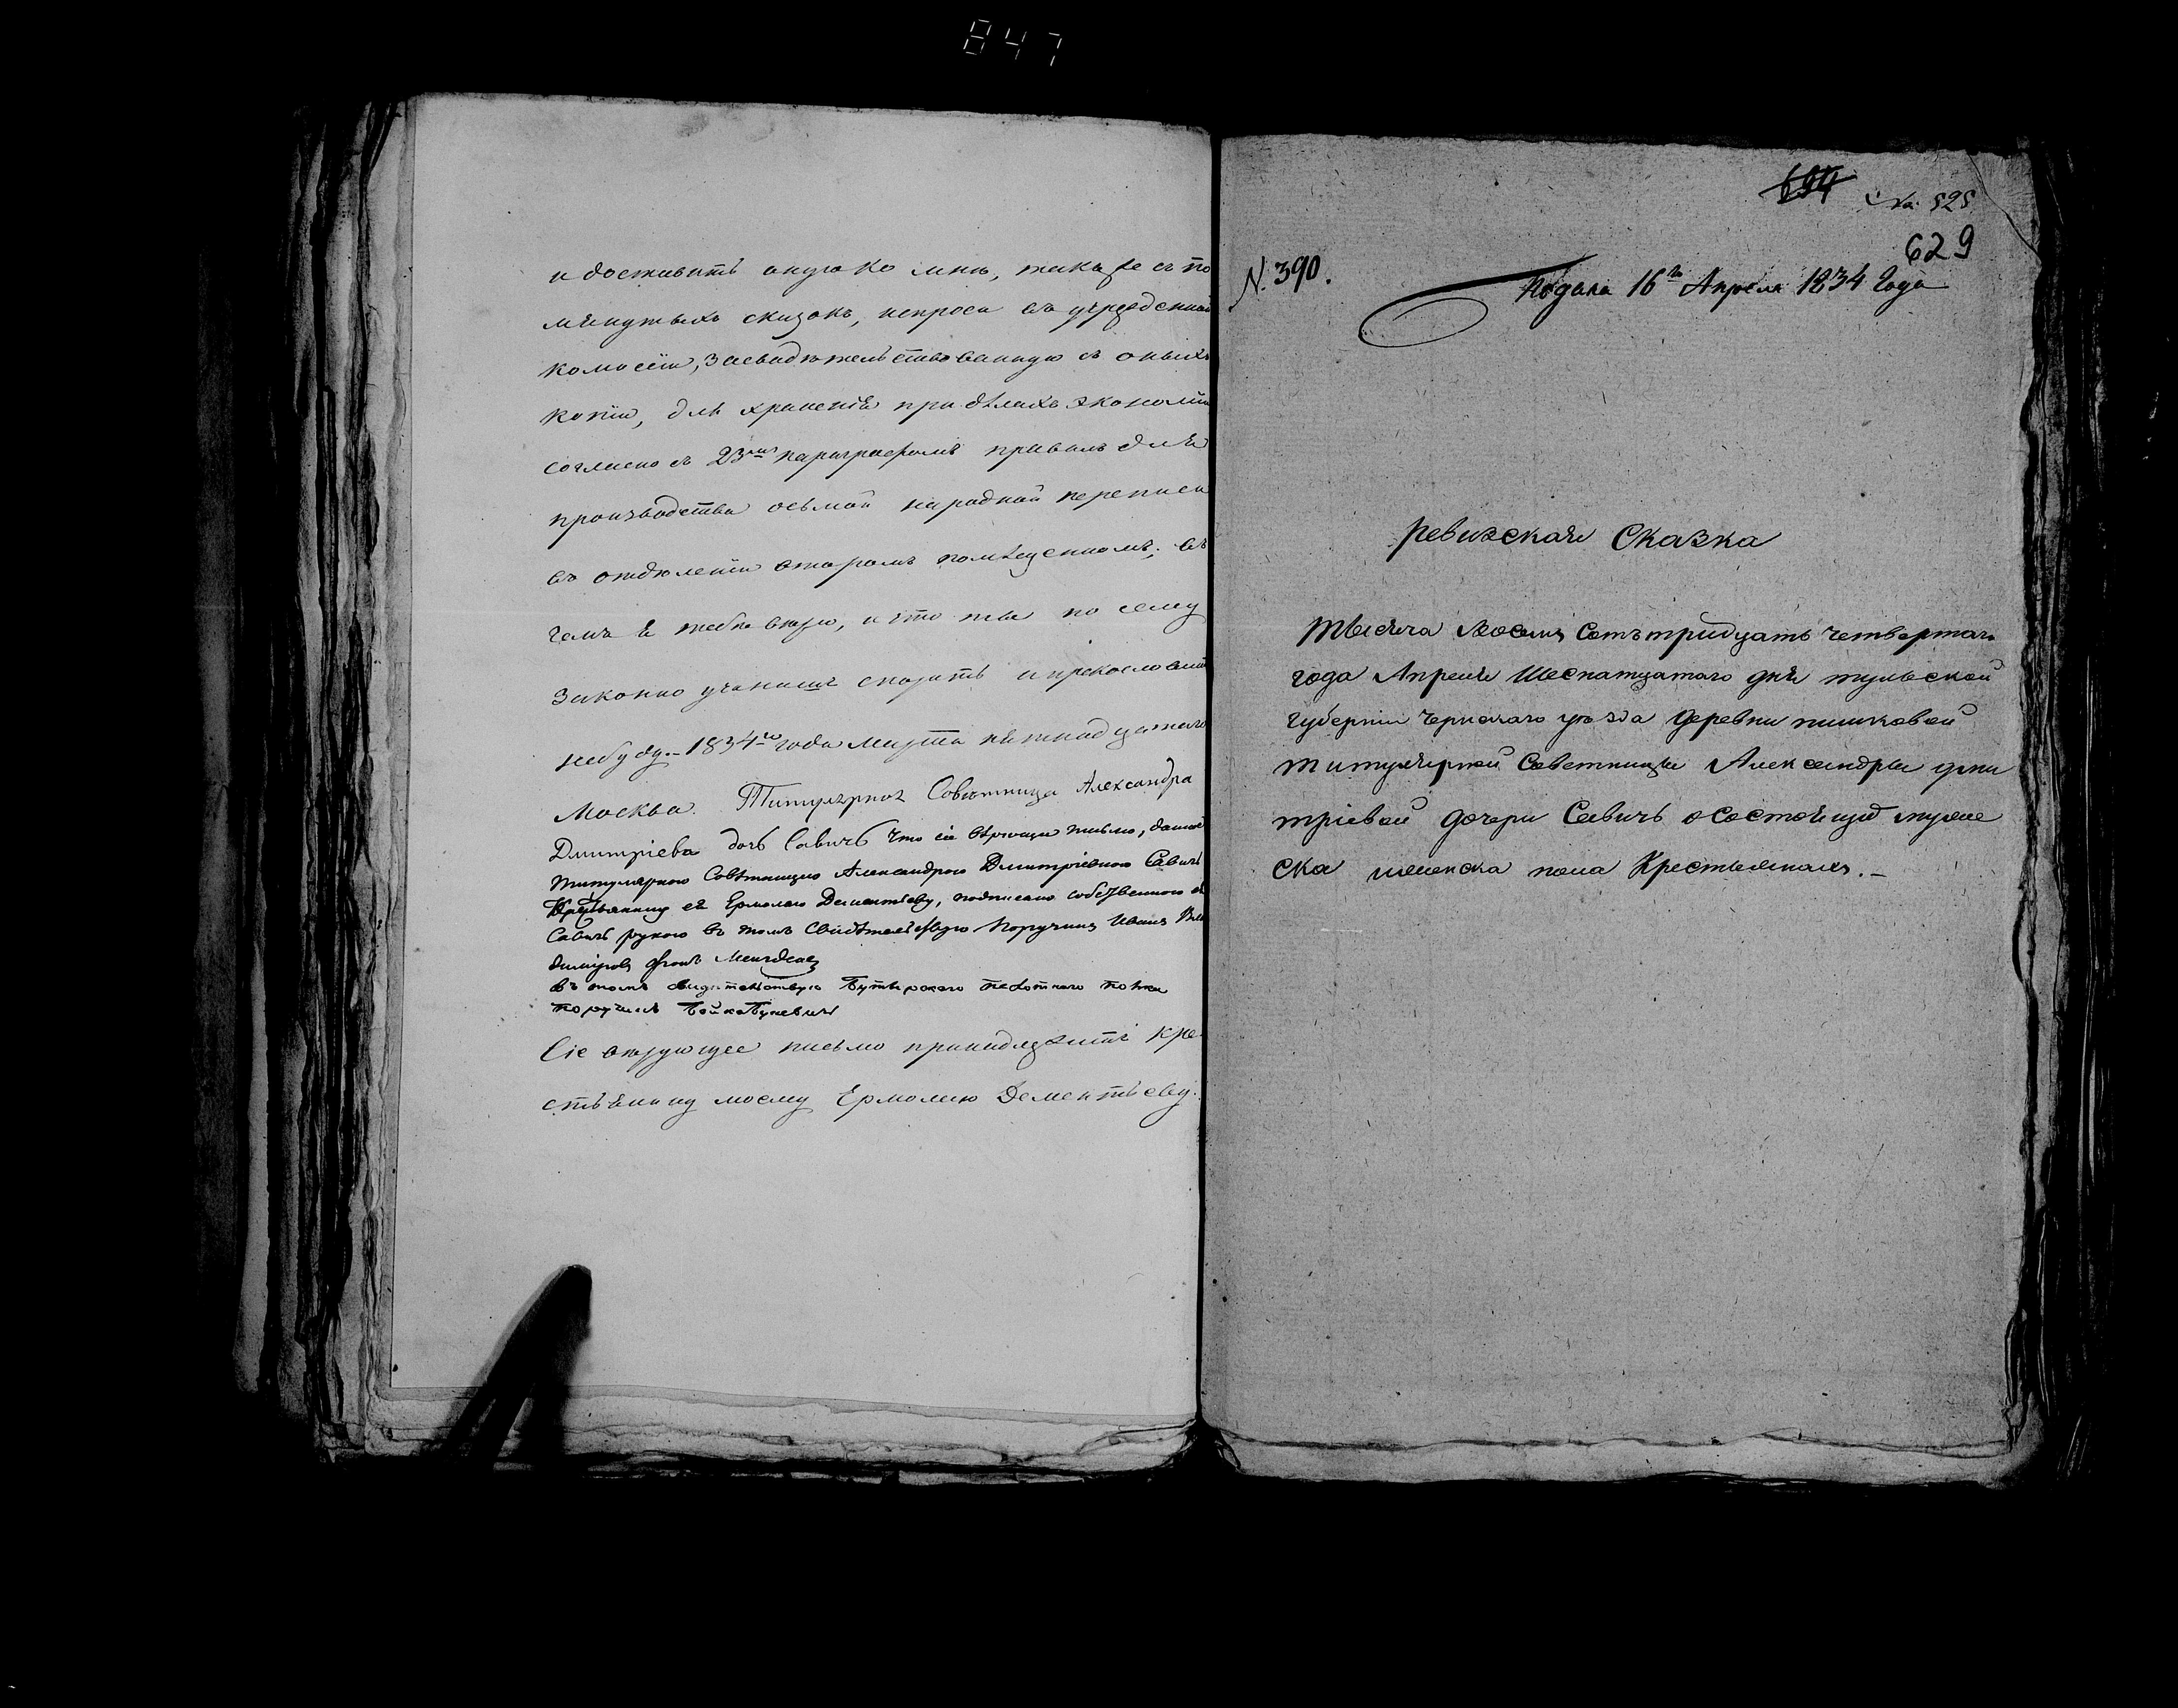 847
и доставить оную ко мнѣ, также съ по
мянутыхъ сказокъ, испрося въ учрежденной
комисіи, засвидѣтельствованную съ оныхъ
копiи, для храненiя при дѣлахъ экономiи
согласно съ 23мъ параграфомъ правилъ для
производства осьмой народной переписи
въ отдѣленiи второмъ помѣщенномъ; въ
чемъ я тебѣ вѣрю, и что ты по сему
законно учинишъ спорить и прекословить
небуду. 1834го года Марта пятнадцатаго
Москва. Титулярноя Совѣтница Александра
Дмитрiева дочь Савичь Что сiе вѣрющее письмо, данное
титулярною Совѣтницею Александрою Дмитрiевною Савичь
Крестьянину ея Ермолаю Дементьеву, подписано собственною ея
Савичь рукою въ томъ Свидѣтельствую Порутчикъ Иванъ Вла
димiровъ Фонъ Менгденъ
въ томъ свидетельствую Бутырскаго пехотнаго полка
порутчикъ
Сiе вѣрующее письмо принадлежитъ кре
стьянину моему Ермолаю Дементьеву.
694
№ 525
629
N. 390.
Подана 16го Апреля 1834 Года
ревизская Сказка
Тысеча Восемь Сотъ тридцать четвертаго
года Апреля Шеснатцатаго дня тульской
губернiи Чернскаго уѣзда деревни пишковой
титулярной Советницы Александры дми
трiевой дочери Савичь о Состоящихъ мужие
ска женска пола Крестьянахъ.